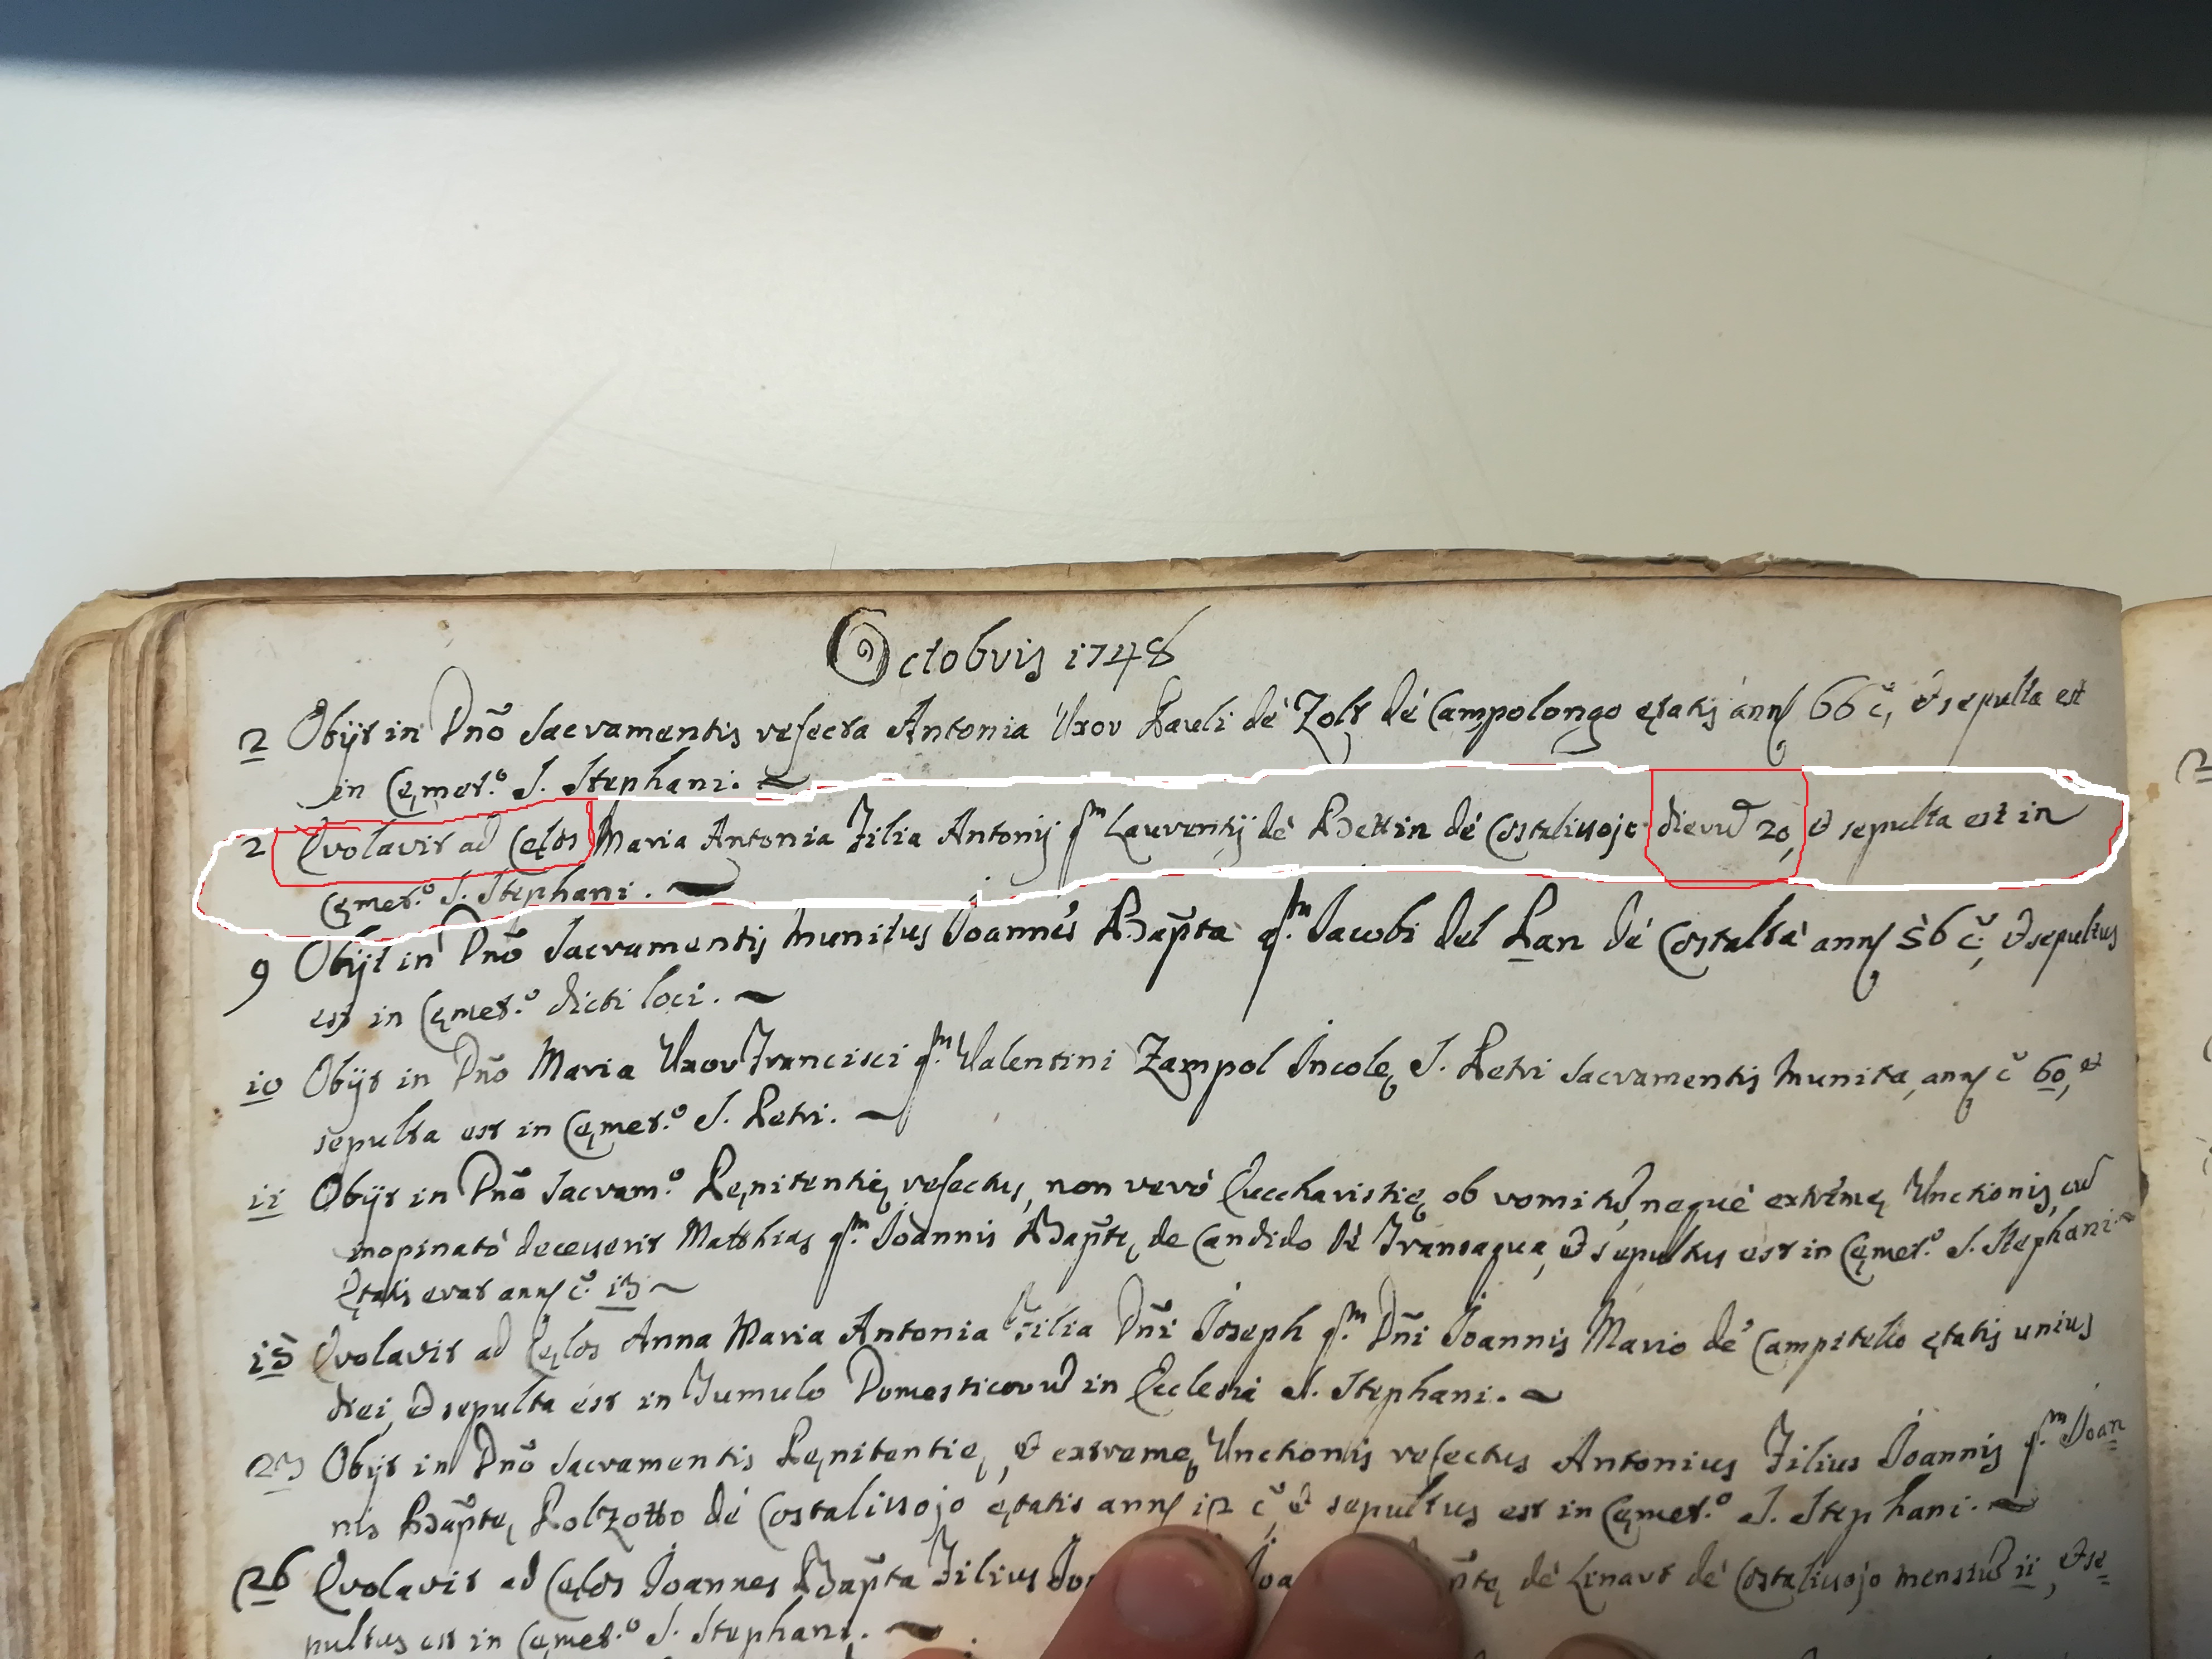 Octobris 1748
2 Obijt in Dño Sacramentis refecta Antonia Uxor Pauli de Zolt de Campolongo ętatis ann 66 c., & sepulta est
in Cęmet.º S. Stephani.
2 Evolavit ad Cęlos Maria Antonia Filia Antonij qm Laurentij de Bettin de Costalissojo dierũ 20, & sepulta est in
Cęmet.º S. Stephani.
9 Obijt in Dño Sacramentis munitus Joannes Bap̃ta qm. Jacobi del Pan de Costalta ann 56 c., & sepultus
est in Cęmet.º dicti loci.
10 Obijt in Dño Maria Uxor Francisci qm. Valentini Zampol Incolę S. Petri Sacramentis munita, ann c 60, &
sepulta est in Cęmet.º S. Petri.
11 Obijt in Dño Sacram.º Pęnitentię refectus, non verò Euccharistię ob vomitũ, neque extremę Unctionis, cũ
inopinatò decesserit Matthias qm. Joannis Bap̃tę de Candido de Transaqua, & sepultus est in Cęmet.º S. Stephani
Ętatis erat ann c. 13
15 Evolavit ad Cęlos Anna Maria Antonia Filia Dñi Joseph qm. Dñi Joannis Mario de Campitello ętatis unius
diei, & sepulta est in Tumulo Domesticorũ in Ecclesia S. Stephani.
23 Obijt in Dño Sacramentis Pęnitentię, & extremę Unctionis refectus Antonius Filius Joannis qm. Joan
nis Bap̃tę Polzotto de Costalissojo ętatis ann 12 c, & sepultus est in Cęmet.º S. Stephani.
26 Evolavit ad Cęlos Joannes Bap̃ta Filius de Linart de Costalissojo mensiũ 11, & se
pultus est in Cęmet.º S. Stephani.